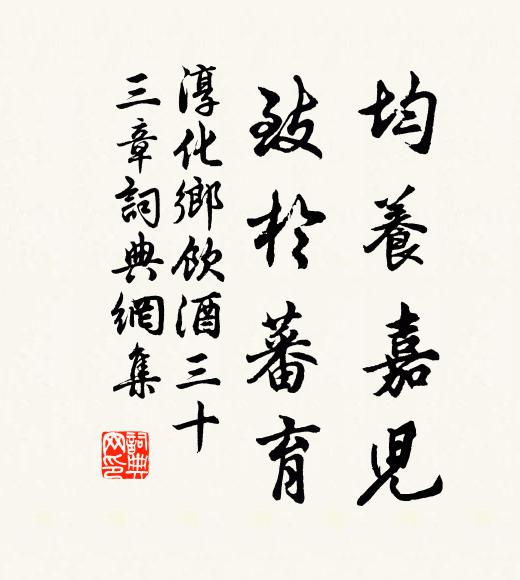 均養嘉児
致於蕃育
淳化鄉飲酒三十
三章詞典網集
詞典
网印